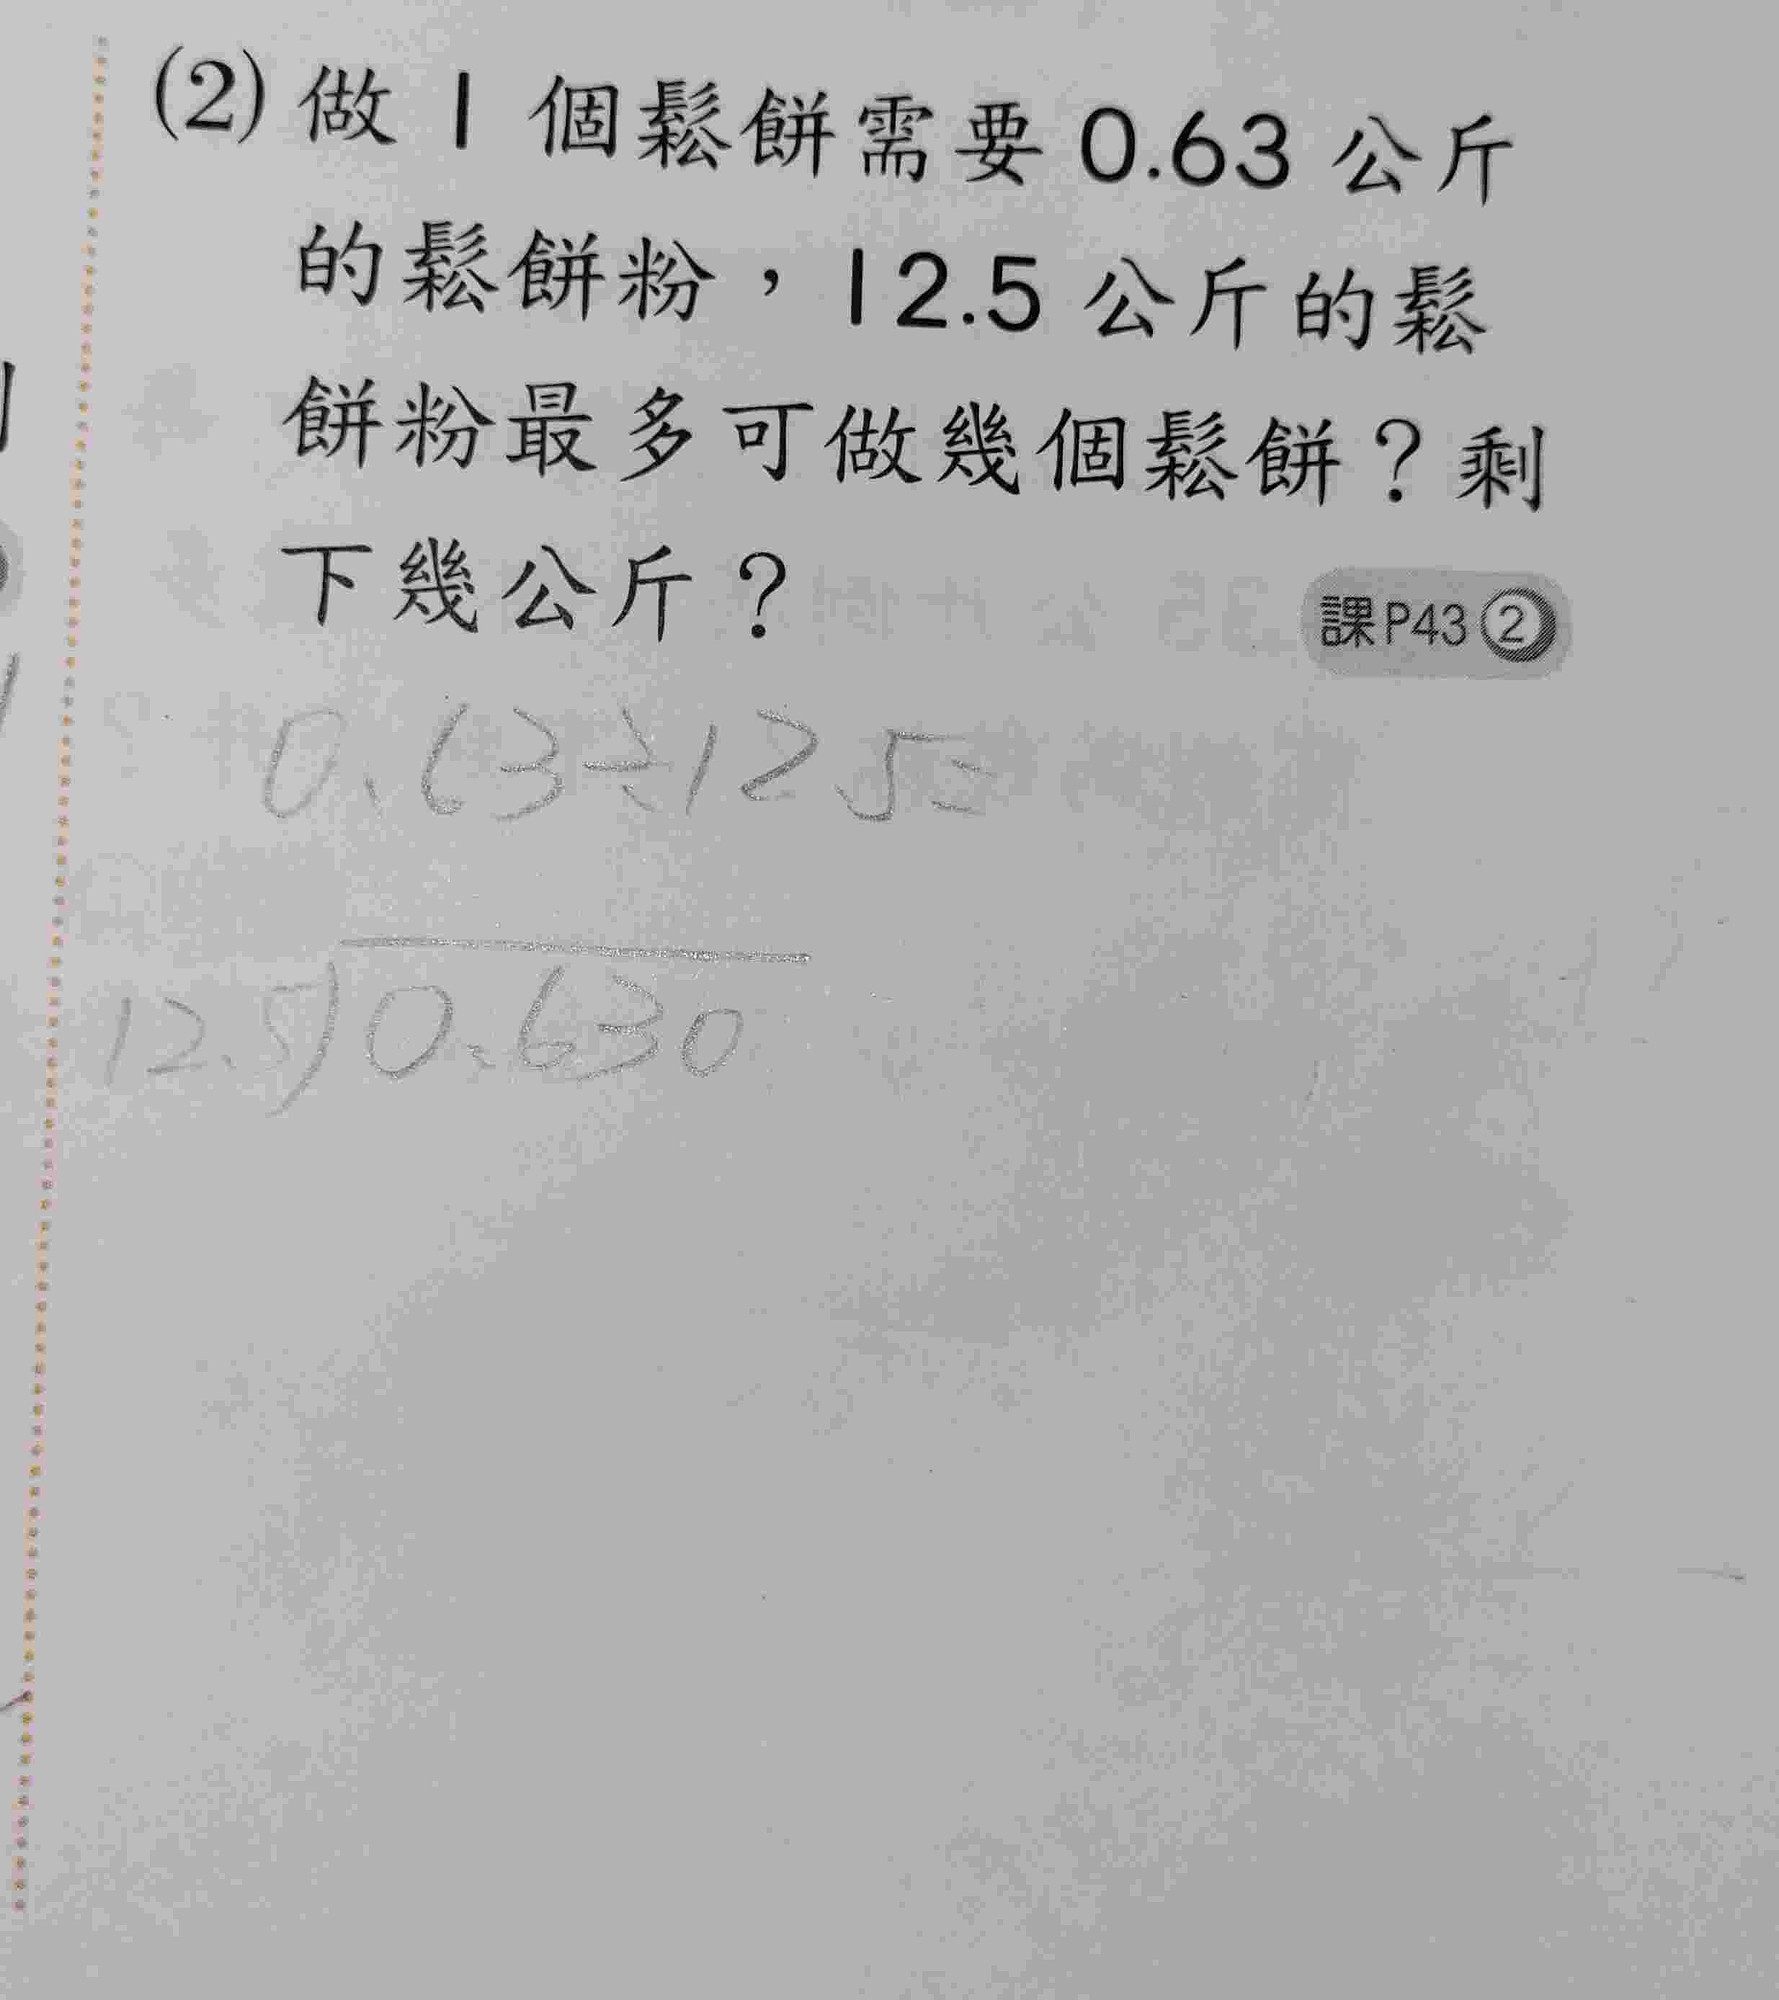 (2) 做 1 個鬆餅需要 0.63 公斤
的鬆餅粉，12.5 公斤的鬆
餅粉最多可做幾個鬆餅？剩
下幾公斤？
課P43 ②
0.63÷12.5=
12.5)0.630